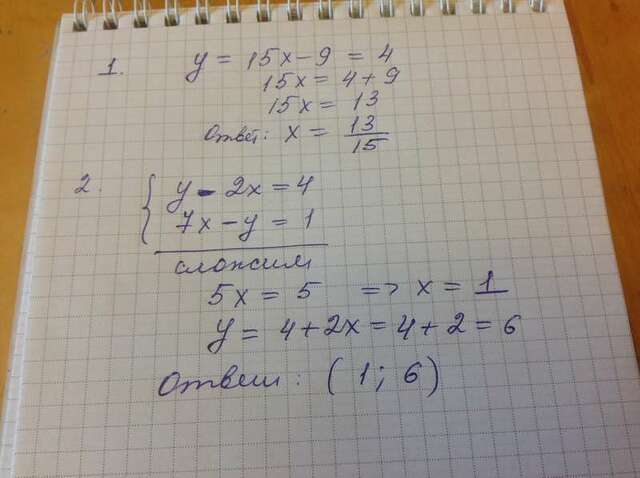 1. y = 15x - 9 = 4
15x = 4 + 9
15x = 13
Ответ: x = 13/15
2. { y - 2x = 4
7x - y = 1
сложим
5x = 5 => x = 1
y = 4 + 2x = 4 + 2 = 6
Ответ: (1; 6)